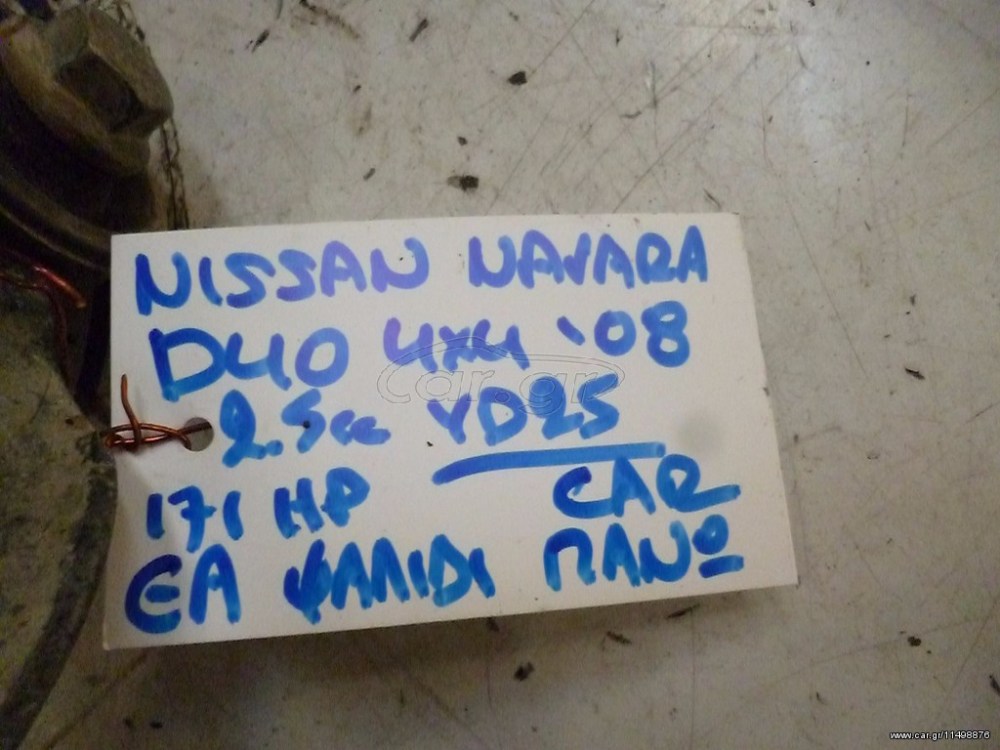 NISSAN NAVARA
D40 4x4 '08
2.5cc YD25
171 HP CAR
ΕΑ ΨΑΛΙΔΙ ΠΑΝΩ
car.gr
www.car.gr/11498876